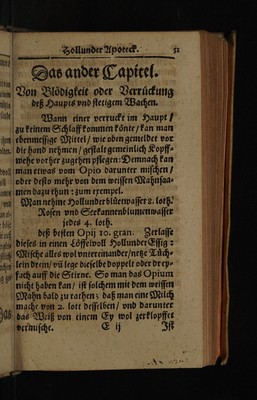 Hollunder Apoteck. 51
Das ander Capitel.
Von Blödigkeit oder Verruckung
deß Hauptes und stetigem Wachen.
Wann einer verruckt im Haupt /
zu keinem Schlaff kommen könte / kan man
ebenmessige Mittel / wie oben gemeldet vor
die hand nehmen / gestalt gemeinlich Kopff-
wehe vorher zugehen pflegen: Demnach kan
man etwas vom Opio darunter mischen /
oder desto mehr von dem weissen Mahnsaa-
men dazu thun: zum exempel.
Man nehme Hollunderblüetwasser 8. loth.
Rosen und Seekannenblumenwasser
jedes 4. loth.
deß besten Opij 10. gran. Zerlasse
dieses in einen Löffelvoll Hollunder Essig:
Mische alles wol untereinander / netze Tüch-
lein drein / vñ lege dieselbe doppelt oder drey-
fach auff die Stirne. So man das Opium
nicht haben kan / ist solchem mit dem weissen
Mahn bald zu rathen: daß man eine Milch
mache von 2. lott desselben / und darunter
das Weiß von einem Ey wol zerklopffet
vermische. E ij Ist